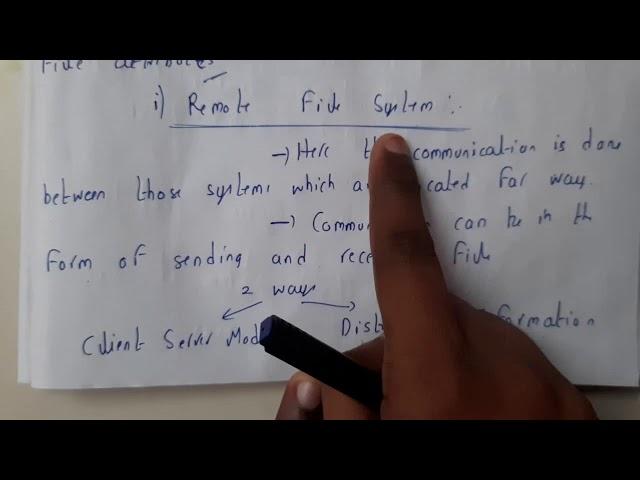 File attributes
i) Remote File System :-
→ Here the communication is done
between those systems which a cated far way.
→ Commu can be in the
form of sending and rece File
2 ways
Client Server Mod Dist formation